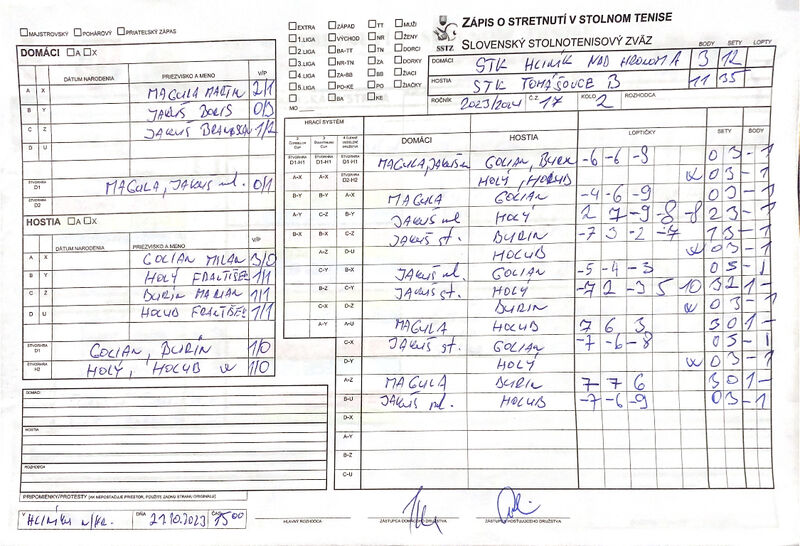 MAJSTROVSKÝ POHÁROVÝ PRIATEĽSKÝ ZÁPAS
DOMÁCI A X
DÁTUM NARODENIA PRIEZVISKO A MENO V/P
A X MAGULA MARTIN 2/1
B Y JAKUŠ BORIS 0/3
C Z JAKUŠ 1/2
D U
ŠTVORHRA D1 MAGULA, JAKUŠ ml. 0/1
ŠTVORHRA D2
HOSTIA A X
DÁTUM NARODENIA PRIEZVISKO A MENO V/P
A X GOLIAN MILAN 3/0
B Y HOLÝ FRANTIŠEK 1/1
C Z DURIN MARIAN 1/1
D U HOLUB FRANTIŠEK 1/1
ŠTVORHRA D1 GOLIAN, DURÍN 1/0
ŠTVORHRA H2 HOLÝ, HOLUB w 1/0
DOMÁCI
HOSTIA
ROZHODCA
PRIPOMIENKY/PROTESTY (AK NEPOSTAČUJE PRIESTOR, POUŽITE ZADNÚ STRANU ORIGINÁLU)
V HLINÍKU n/Hr. DŇA 21.10.2023 ČAS 15:00
EXTRA ZÁPAD TT MUŽI
1.LIGA VÝCHOD NR ŽENY
2.LIGA BA-TT TN DORCI
3.LIGA NR-TN ZA DORKY
4.LIGA ZA-BB BB ŽIACI
5.LIGA PO-KE PO ŽIAČKY
MO BA KE
SSTZ
ZÁPIS O STRETNUTÍ V STOLNOM TENISE
SLOVENSKÝ STOLNOTENISOVÝ ZVÄZ
BODY SETY LOPTY
DOMÁCI STK HLINÍK NAD HRONOM A 3 12
HOSTIA STK TOMÁŠOVCE B 11 35
ROČNÍK 2023/2024 Č. 17 KOLO 2 ROZHODCA
HRACÍ SYSTÉM
DOMÁCI HOSTIA LOPTIČKY SETY BODY
ŠTVORHRA D1-H1 D1-H1 D1-H1 MAGULA, JAKUŠ ml. GOLIAN, DURIN -6 -6 -9 0 3 - 1
A-X A-X D2-H2 HOLÝ, HOLUB w 0 3 - 1
B-Y B-Y A-X MAGULA GOLIAN -4 -6 -9 0 3 - 1
A-Y C-Z B-Y JAKUŠ ml. HOLÝ 2 7 -9 -8 -8 2 3 - 1
B-X B-X C-Z JAKUŠ st. DURIN -7 3 -2 -7 1 3 - 1
A-Z D-U HOLUB w 0 3 - 1
C-Y B-X JAKUŠ ml. GOLIAN -5 -4 -3 0 3 - 1
B-Z C-Y JAKUŠ st. HOLÝ -7 2 -3 5 10 3 2 1 -
C-X D-Z DURIN w 0 3 - 1
A-Y A-U MAGULA HOLUB 7 6 3 3 0 1 -
C-X JAKUŠ st. GOLIAN -7 -6 -8 0 3 - 1
D-Y HOLÝ w 0 3 - 1
A-Z MAGULA DURIN 7 7 6 3 0 1 -
B-U JAKUŠ ml. HOLUB -7 -6 -9 0 3 - 1
D-X
A-Y
B-Z
C-U
HLAVNÝ ROZHODCA
ZÁSTUPCA DOMÁCEHO DRUŽSTVA
ZÁSTUPCA HOSŤUJÚCEHO DRUŽSTVA